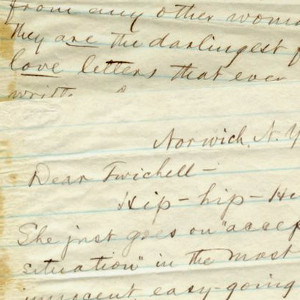 from any other woma
They are the darlingest f
love letters that ever
writt
Norwich, N. Y
Dear Twichell—
Hip-hip-Hu
She just goes on "accep
situation" in the most
innocent, easy-going